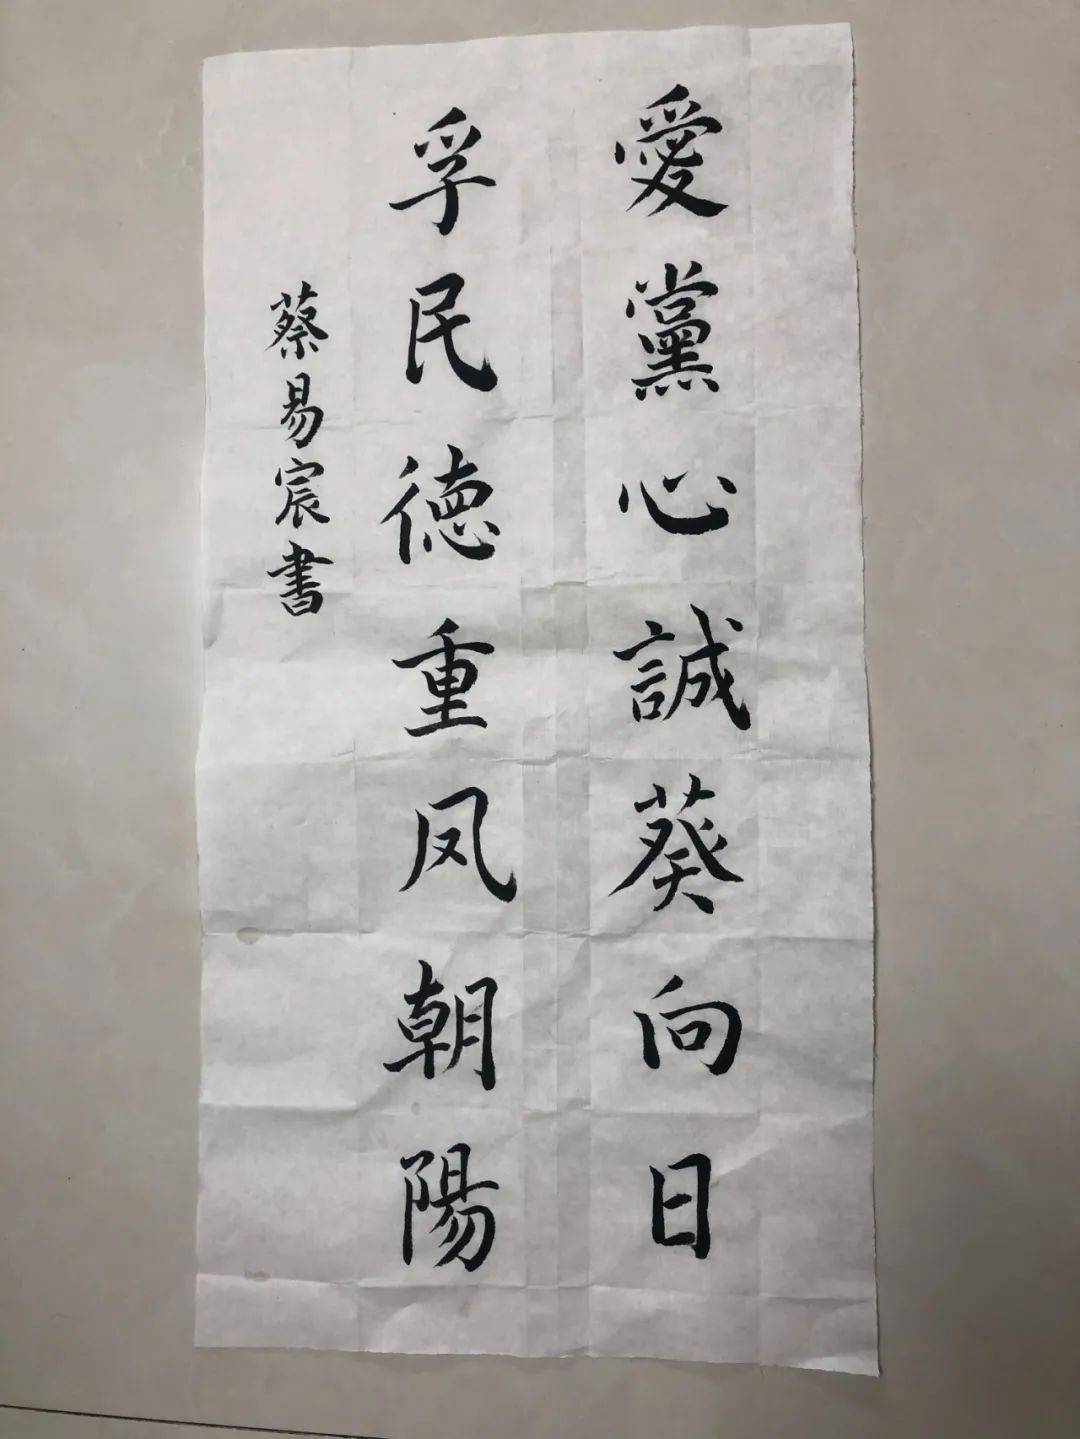 愛黨心誠葵向日
孚民德重凤朝陽
蔡易宸書